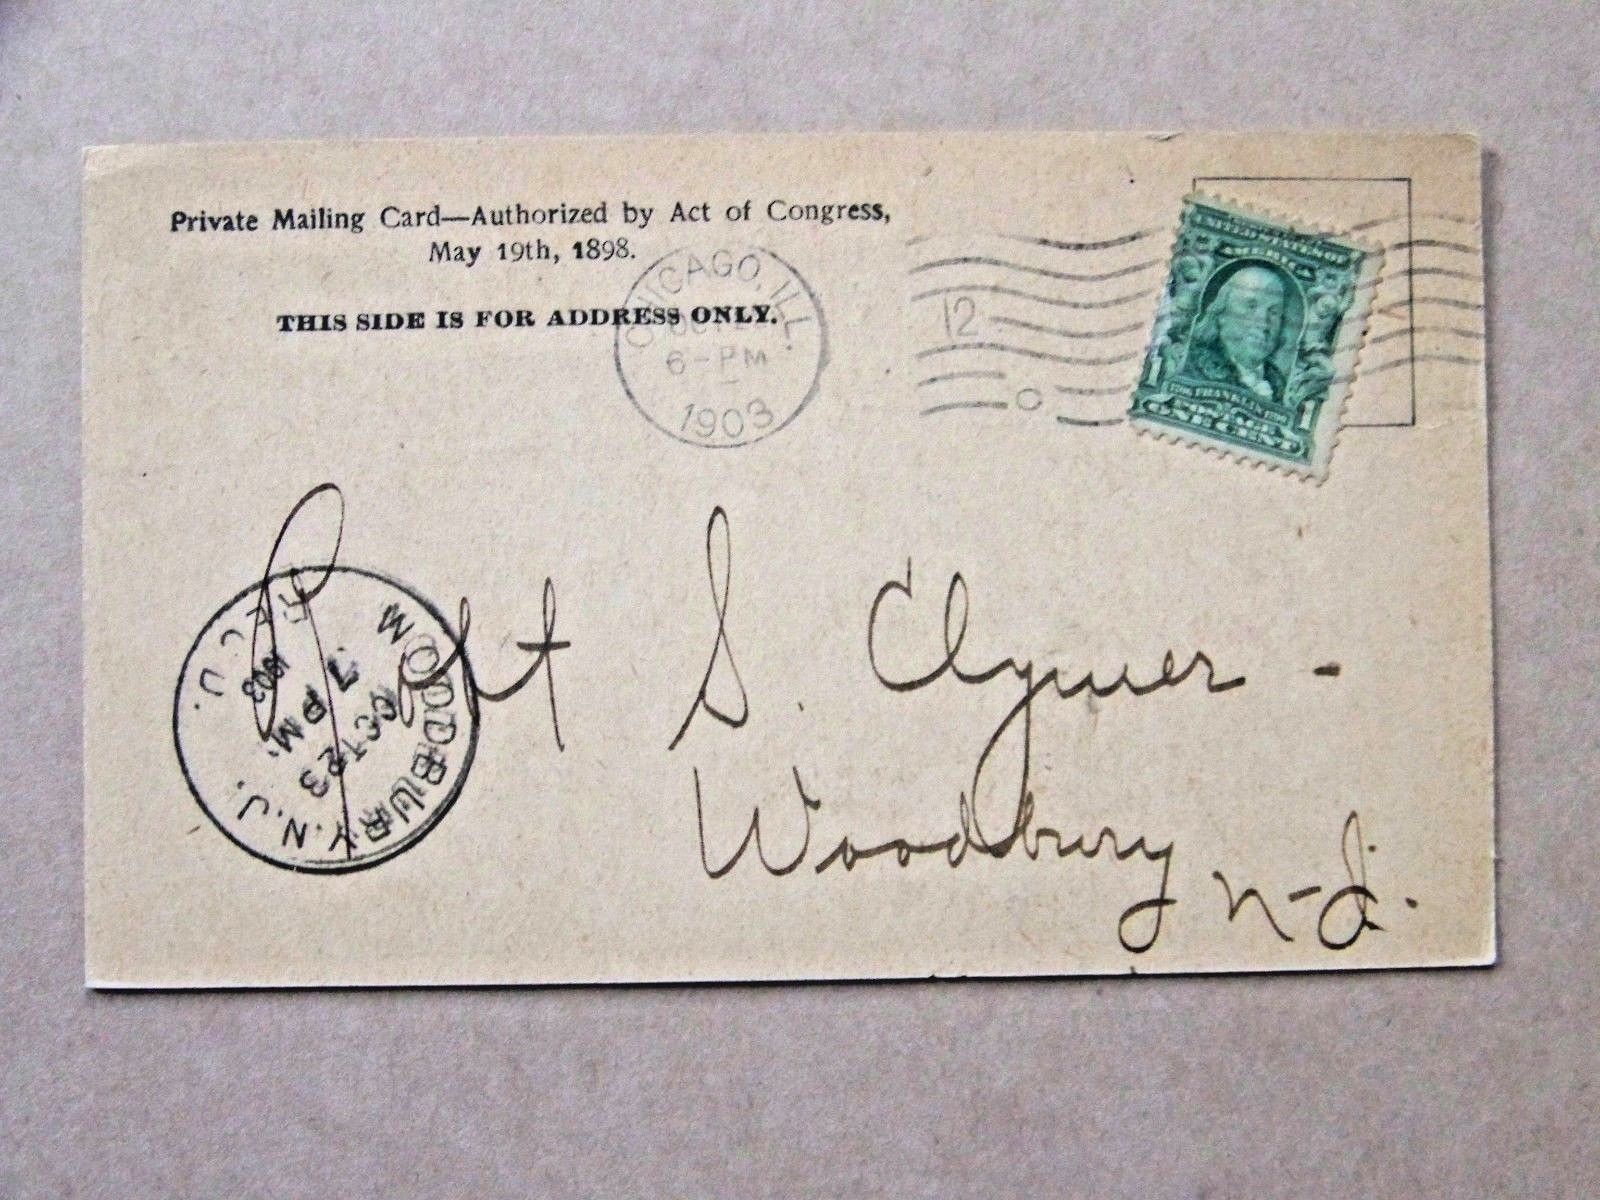 Private Mailing Card—Authorized by Act of Congress,
May 19th, 1898.
THIS SIDE IS FOR ADDRESS ONLY.
CHICAGO, ILL.
6-PM
1903
12
UNITED STATES OF AMERICA
FRANKLIN
POSTAGE
1 ONE CENT 1
S. Clymer -
Woodbury N-J.
WOODBURY, N.J.
OCT 23
7 PM.
1903
REC'D.